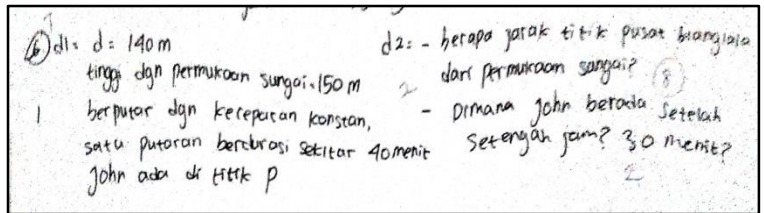 6) d1: d: 140 m
tinggi dgn permukaan sungai: 150 m
1 berputar dgn kecepatan konstan,
satu putaran berdurasi sekitar 40 menit
John ada di titik P
d2: - berapa jarak titik pusat bianglala
dari permukaan sungai?
2
8
- Dimana John berada setelah
setengah jam? 30 menit?
2